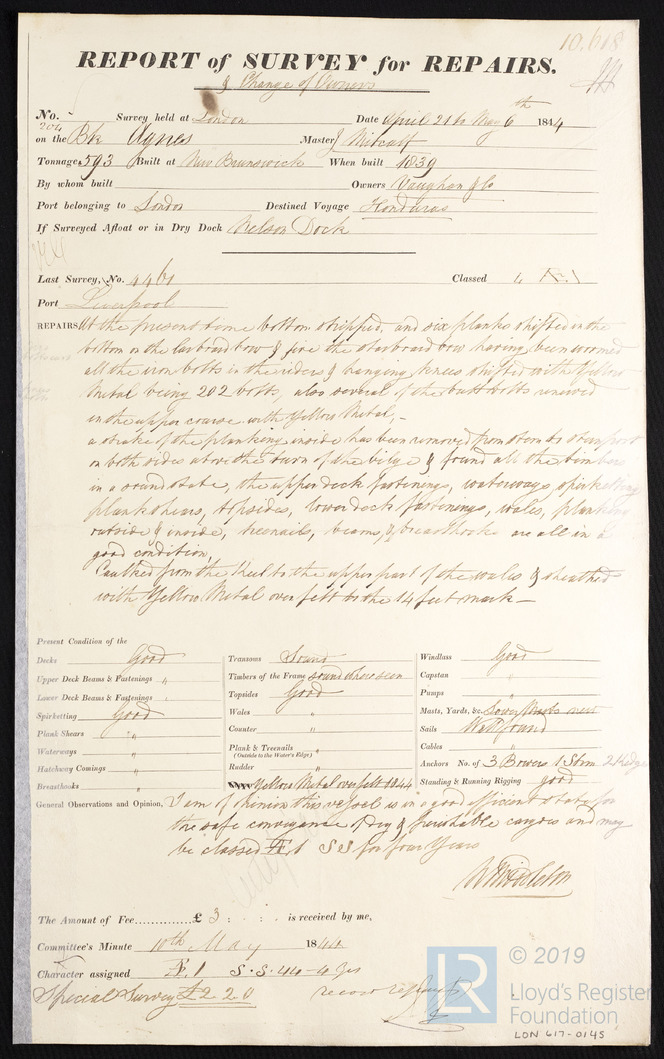 10,618
REPORT of SURVEY for REPAIRS.
& Change of Owners
No. 204 Survey held at London Date April 21 to May 6th 1844
on the Bk Agnes Master J Metcalf
Tonnage 593 Built at New Brunswick When built 1839
By whom built Owners Vaughan & Co
Port belonging to London Destined Voyage Honduras
If Surveyed Afloat or in Dry Dock Nelson Dock
Last Survey, No. 4461 Classed 4 Æ.1
Port Liverpool
REPAIRS At the present time bottom stripped, and six planks shifted in the
bottom on the larboard bow & five the starboard bow having been wormed
all the iron bolts in the riders & hanging knees shifted with Yellow
Metal being 202 bolts, also several of the butt bolts renewed
in the upper course with Yellow Metal,–
a strake of the planking inside has been removed from stem to sternpost
on both sides above the turn of the bilge & found all the timbers
in a sound state, the upper deck fastenings, waterways, spirketting
planksheers, topsides, lower deck fastenings, wales, planking
outside & inside, treenails, beams, & breasthooks are all in a
good condition,
Caulked from the Keel to the upper part of the wales & sheathed
with Yellow Metal over felt to the 14 feet mark –
Present Condition of the
Decks Good
Upper Deck Beams & Fastenings "
Lower Deck Beams & Fastenings "
Spirketting Good
Plank Shears "
Waterways "
Hatchway Comings "
Breasthooks "
Transoms Sound
Timbers of the Frame sound where seen
Topsides Good
Wales "
Counter "
Plank & Treenails "
(Outside to the Water's Edge)
Rudder "
Yellow Metal over felt 1844
Windlass Good
Capstan "
Pumps "
Masts, Yards, &c. Lower Masts new
Sails Well found
Cables "
Anchors No. of 3 Bowers 1 Strm 2 Kedges
Standing & Running Rigging good
General Observations and Opinion, I am of opinion this vessel is in a good efficient state for
the safe conveyance of dry & perishable cargoes and may
be classed Æ1 SS for four Years
W Middleton
The Amount of Fee............£ 3 : . : . is received by me,
Committee's Minute 10th May 1844
Character assigned Æ.1 S.S.44-4 Yrs
Special Survey £2 2 0
LR
© 2019
Lloyd's Register
Foundation
LON 617-0145